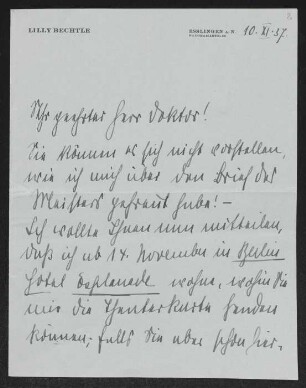 LILLY BECHTLE
ESSLINGEN a. N.
10. XI. 37.
Sehr geehrter Herr Doktor!
Sie können es sich nicht vorstellen,
wie ich mich über den Brief des
Meisters gefreut habe! –
Ich wollte Ihnen nun mitteilen,
daß ich ab 14. November in Berlin
Hotel Esplanade wohne, wohin Sie
mir die Theaterkarte senden
können; falls Sie aber schon hier-